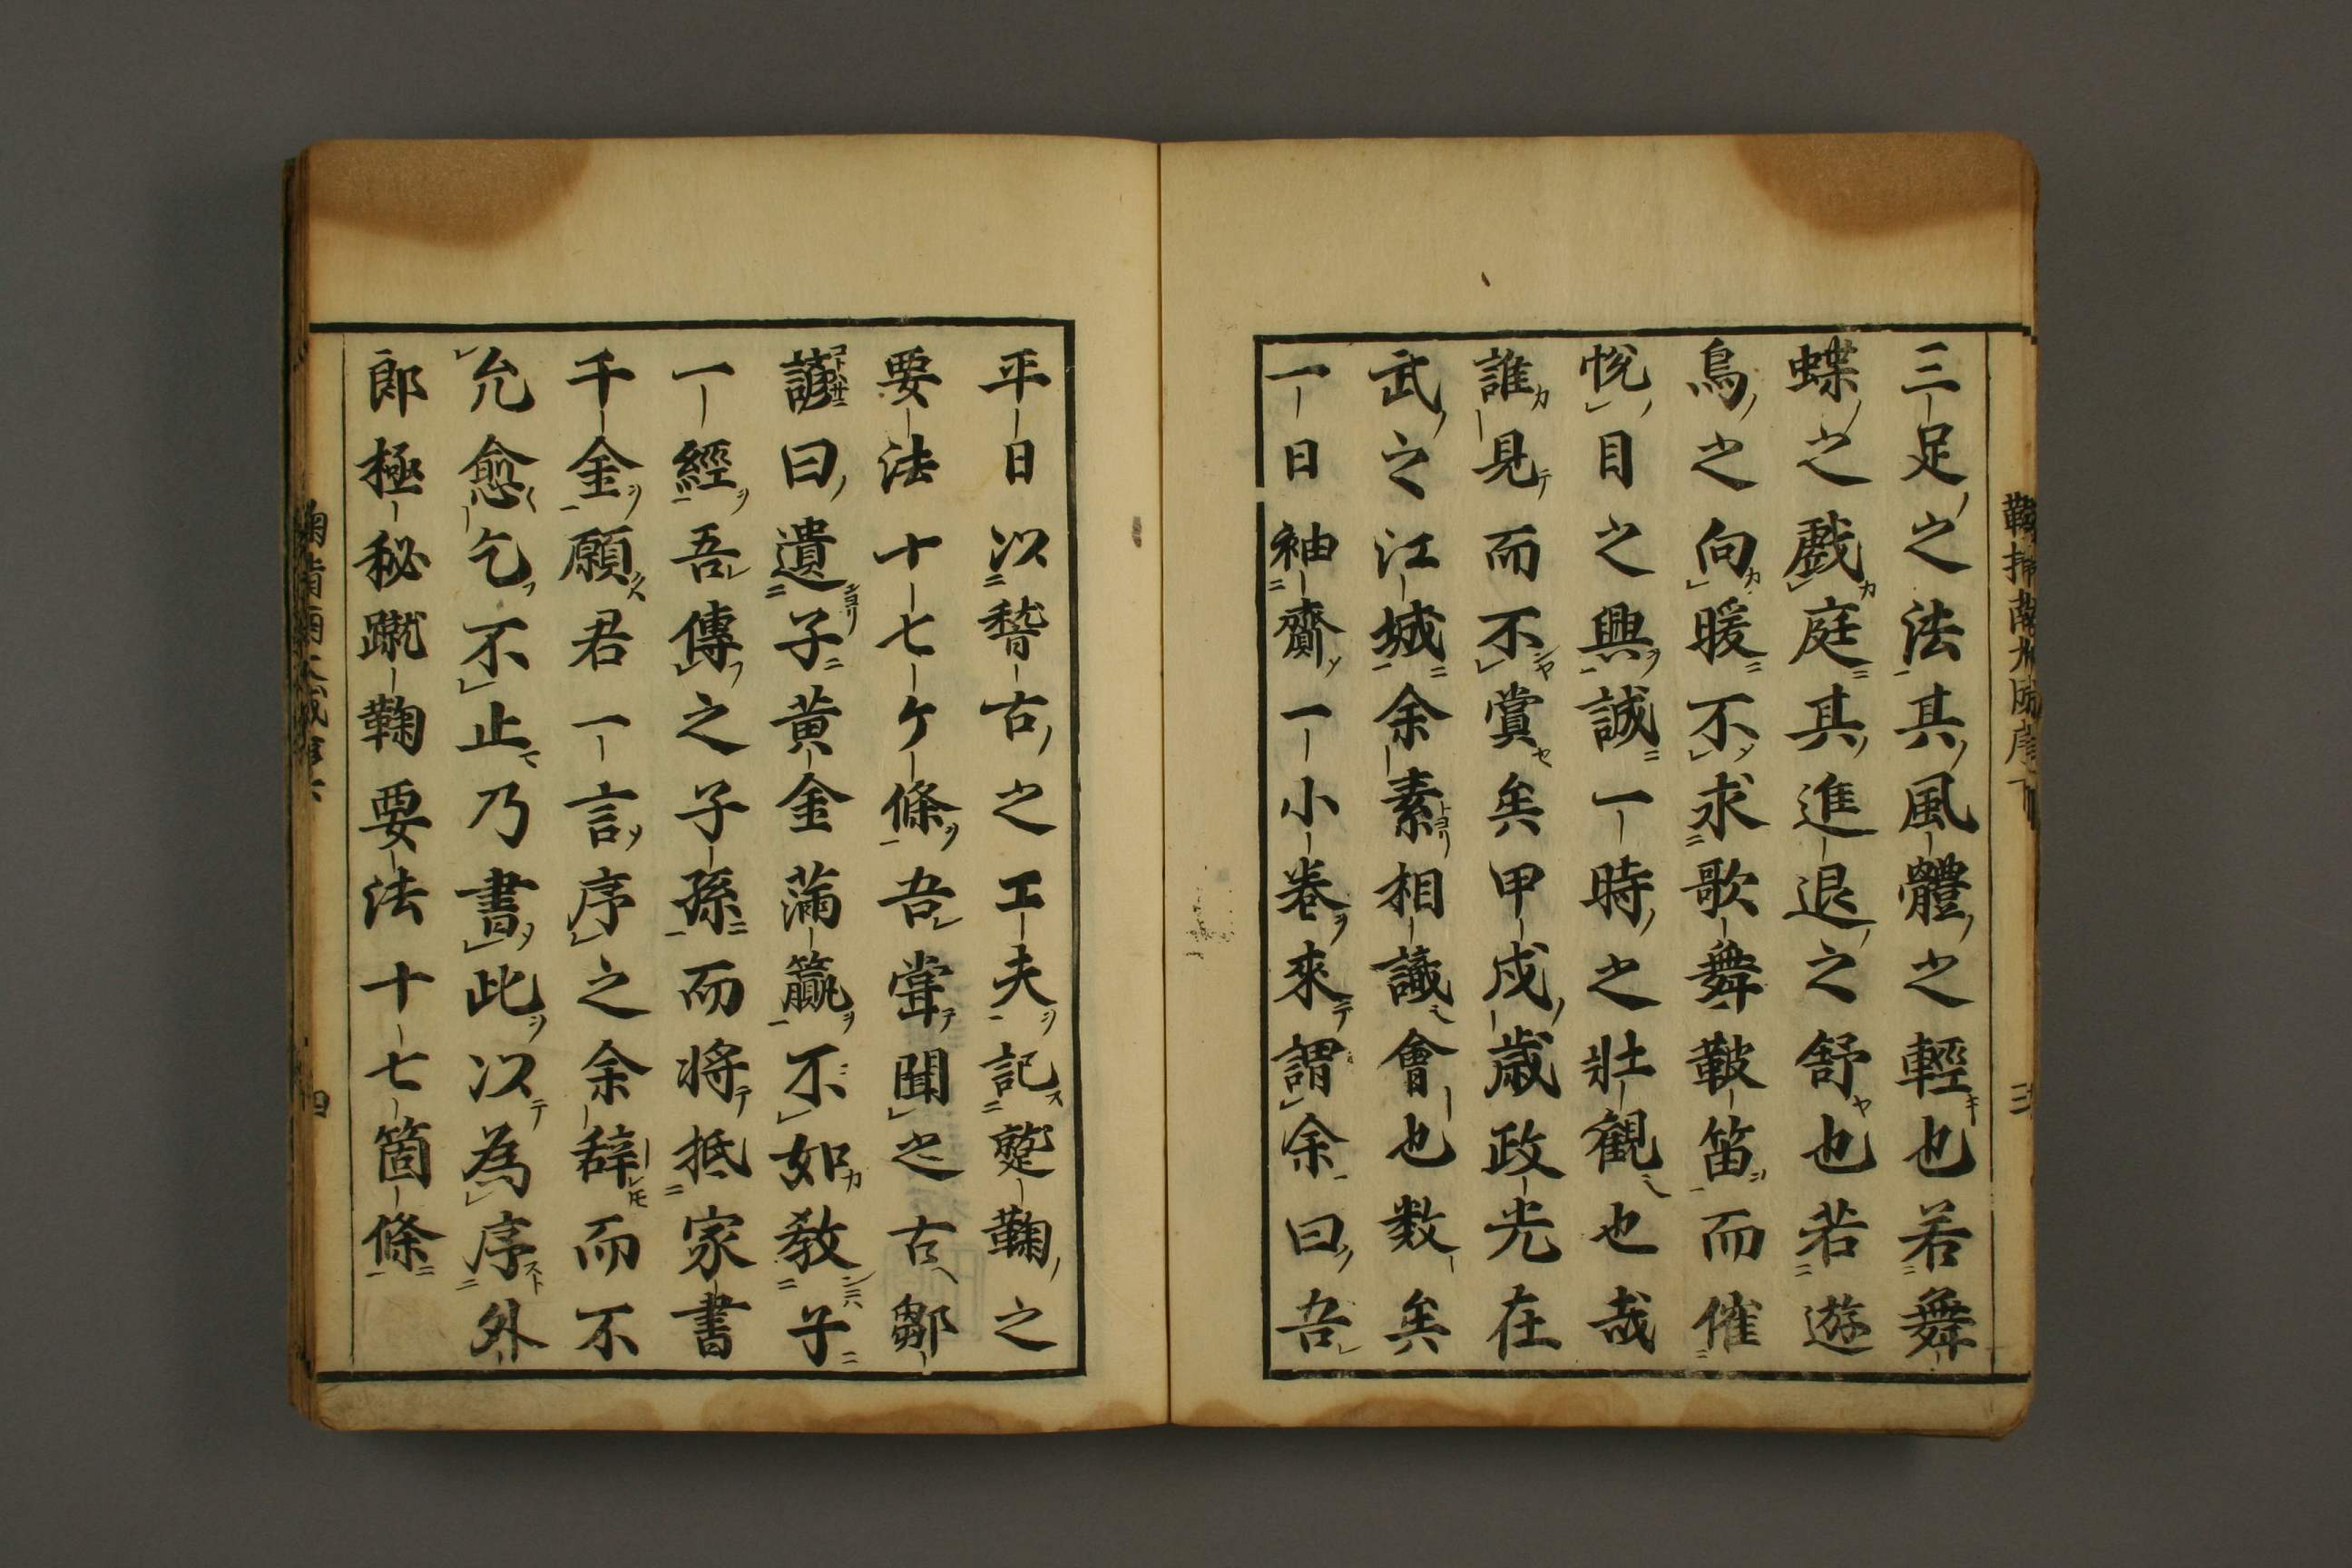 三足之法其風體之輕也若舞
蝶之戲庭其進退之舒也若遊
鳥之向暖不求歌舞鼓笛而催
悅目之興誠一時之壯觀也哉
誰見而不賞矣甲戌歲政光在
武之江城余素相識會也数矣
一日袖齎一小卷來謂余曰吾
平日以稽古之工夫記蹵鞠之
要法十七ケ條吾嘗聞之古鄒
諺曰遺子黃金滿籯不如教子
一經吾傳之子孫而将抵家書
千金願君一言序之余辞而不
允愈乞不止乃書此以為序外
郎極秘蹴鞠要法十七箇條
三
四